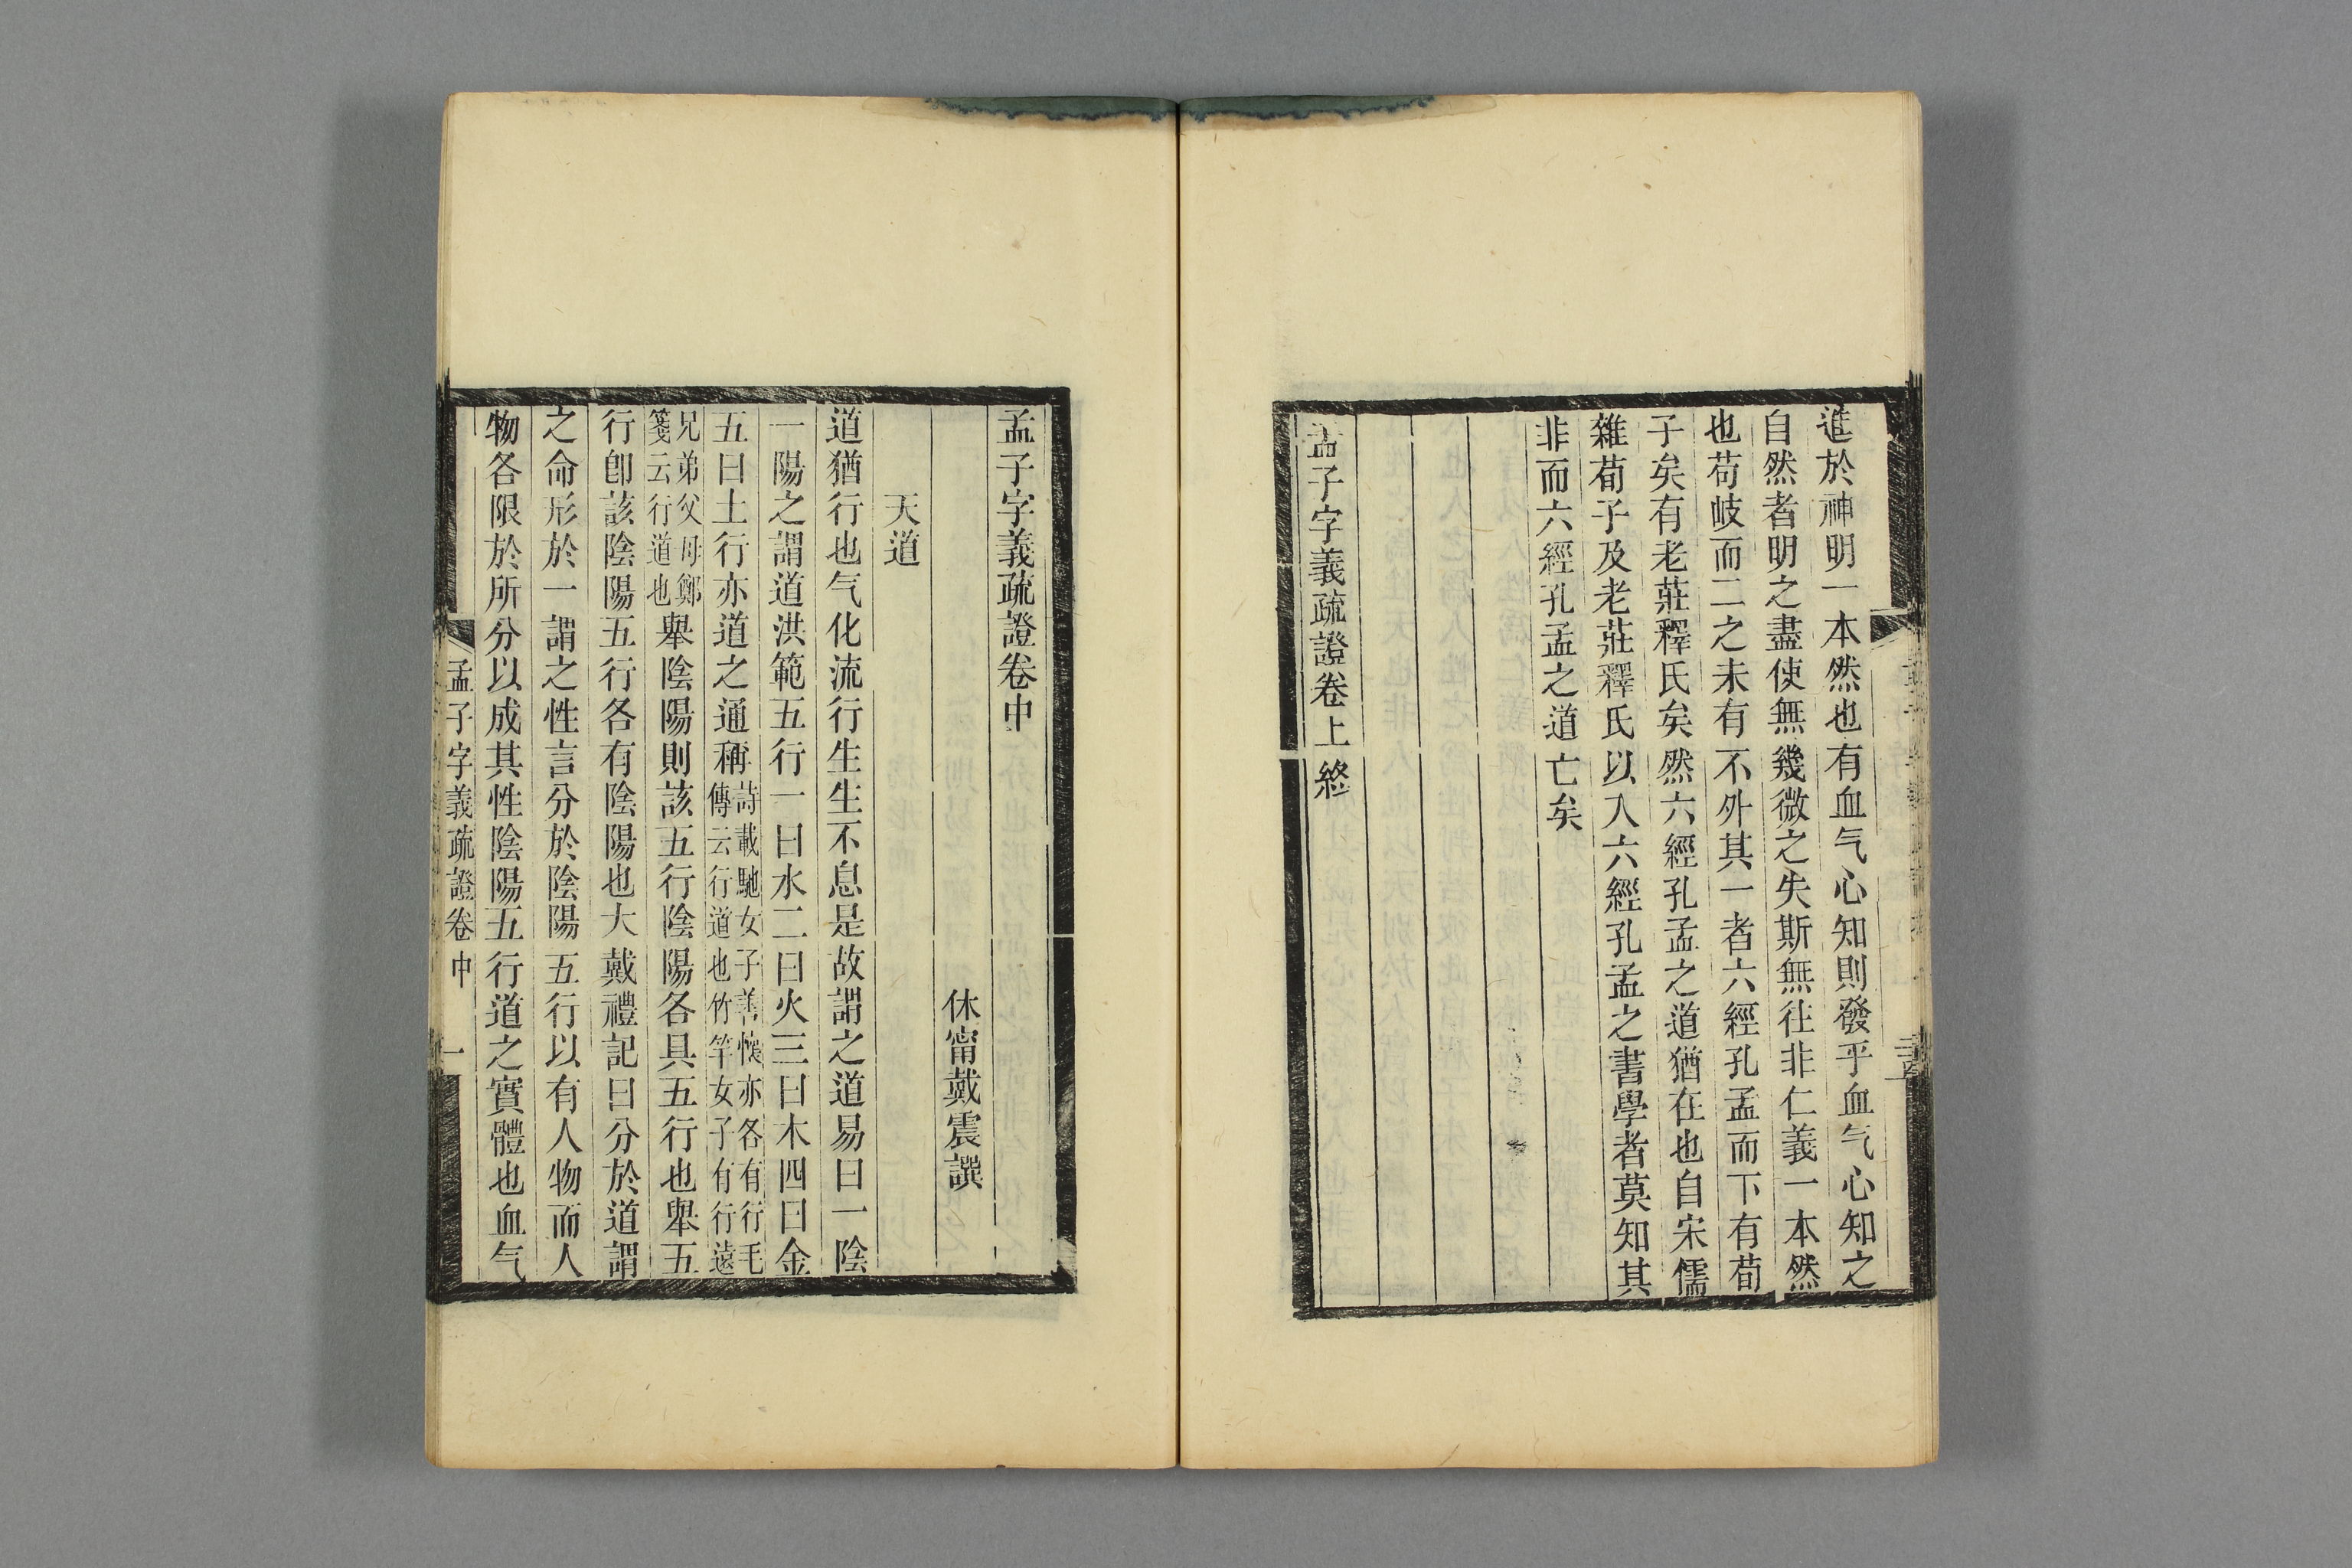 進於神明一本然也有血气心知則發乎血气心知之
自然者明之盡使無幾微之失斯無往非仁義一本然
也苟岐而二之未有不外其一者六經孔孟而下有荀
子矣有老莊釋氏矣然六經孔孟之道猶在也自宋儒
雜荀子及老莊釋氏以入六經孔孟之書學者莫知其
非而六經孔孟之道亡矣
孟子字義疏證卷上終
孟子字義疏證卷中
休甯戴震譔
天道
道猶行也气化流行生生不息是故謂之道易曰一陰
一陽之謂道洪範五行一曰水二曰火三曰木四曰金
五曰土行亦道之通稱詩載馳女子善懷亦各有行毛傳云行道也竹竿女子有行遠
兄弟父母鄭箋云行道也舉陰陽則該五行陰陽各具五行也舉五
行卽該陰陽五行各有陰陽也大戴禮記曰分於道謂
之命形於一謂之性言分於陰陽五行以有人物而人
物各限於所分以成其性陰陽五行道之實體也血气
孟子字義疏證卷中 一